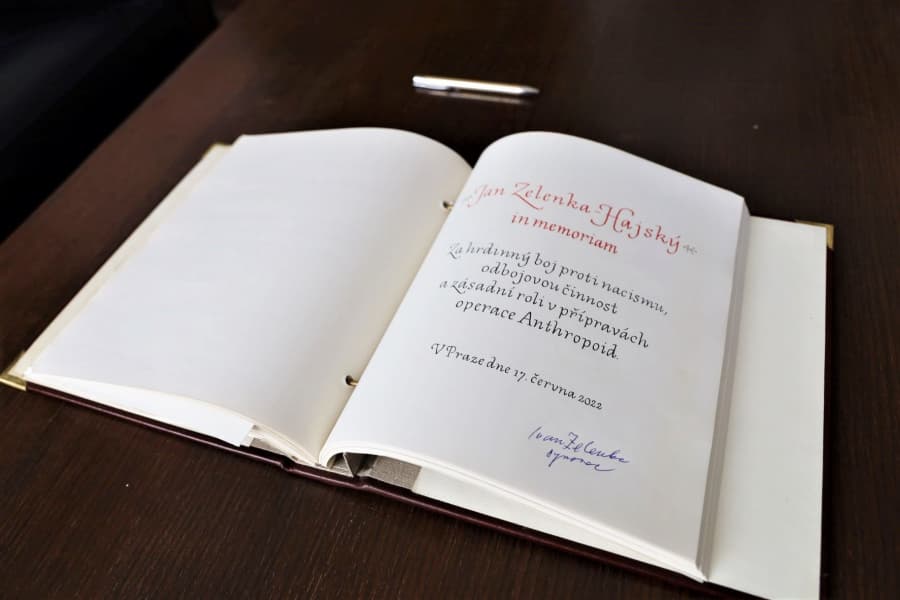 Jan Zelenka-Hajský
in memoriam
Za hrdinný boj proti nacismu,
odbojovou činnost
a zásadní roli v přípravách
operace Anthropoid.
V Praze dne 17. června 2022
Ivan Zelenka
synovec